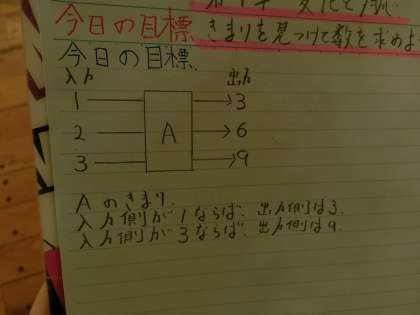 今日の目標 きまりを見つけて数を求めよ
今日の目標.
入力 出力
1 3
2 A 6
3 9
Aのきまり.
入力側が1ならば、出力側は3.
入力側が3ならば、出力側は9.